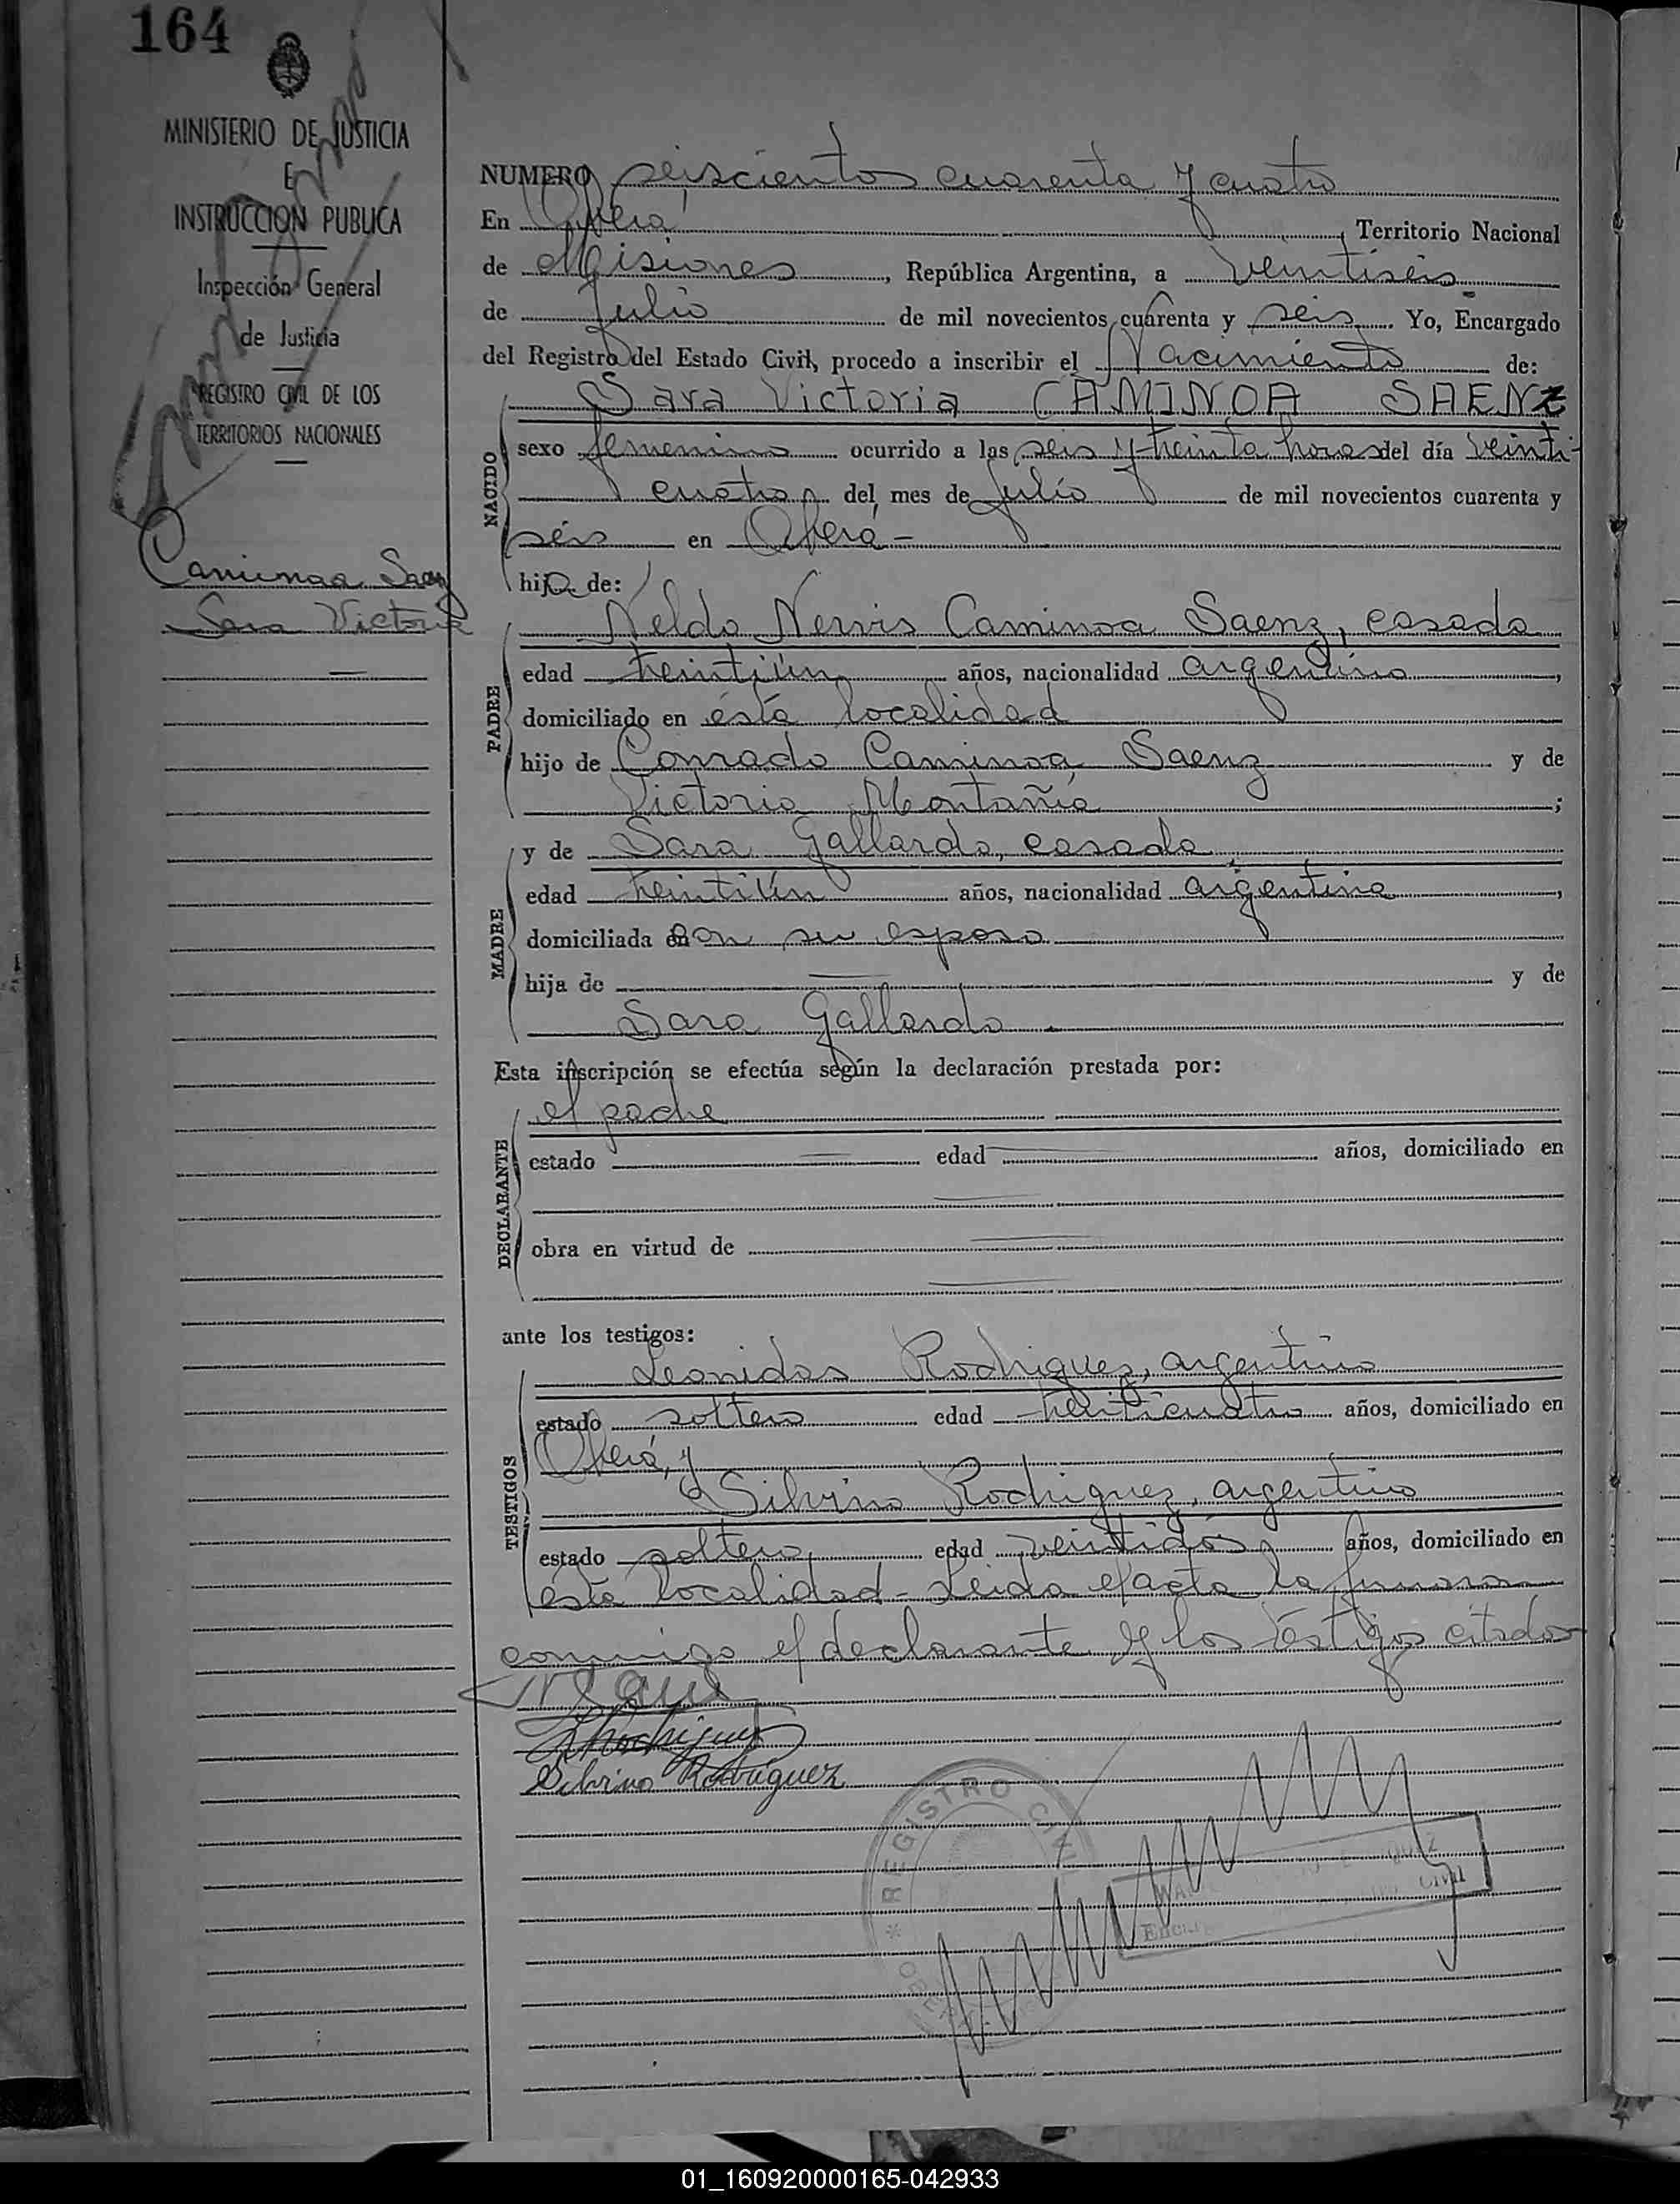 164
MINISTERIO DE JUSTICIA
E
INSTRUCCION PUBLICA
Inspección General
de Justicia
REGISTRO CIVIL DE LOS
TERRITORIOS NACIONALES
Caminoa Saenz
Sara Victoria
NUMERO seiscientos cuarenta y cuatro
En Oberá, Territorio Nacional
de Misiones, República Argentina, a veintiseis
de Julio de mil novecientos cuarenta y seis. Yo, Encargado
del Registro del Estado Civil, procedo a inscribir el Nacimiento de:
Sara Victoria CAMINOA SAENZ
NACIDO
sexo femenino ocurrido a las seis y treinta horas del día veinti-
cuatro del mes de julio de mil novecientos cuarenta y
séis en Oberá -
hija de:
PADRE
Neldo Nervis Caminoa Saenz, casado
edad treintiún años, nacionalidad argentino,
domiciliado en ésta localidad
hijo de Conrado Caminoa Saenz y de
Victoria Montañia;
MADRE
y de Sara Gallardo, casada
edad treintiún años, nacionalidad argentina,
domiciliada con su esposo
hija de — y de
Sara Gallardo
Esta inscripción se efectúa según la declaración prestada por:
DECLARANTE
el padre
estado — edad — años, domiciliado en
obra en virtud de
ante los testigos:
TESTIGOS
Leonidas Rodriguez, argentino
estado soltero edad treinticuatro años, domiciliado en
Oberá, y
Silvino Rodriguez, argentino
estado soltero edad veintidós años, domiciliado en
ésta localidad - Leida el acta la firmaron
conmigo el declarante y los testigos citados
Silvino Rodriguez
REGISTRO CIVIL
Civil
01_160920000165-042933